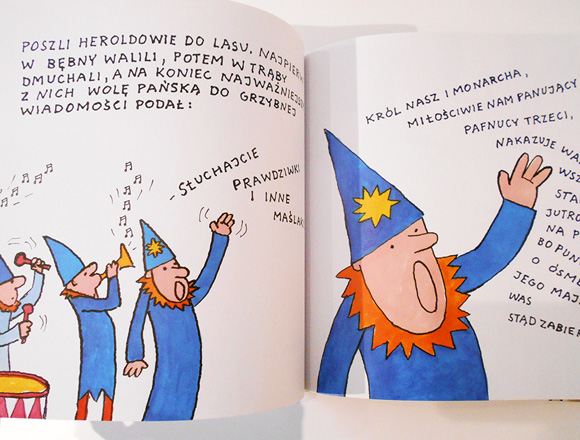 POSZLI HEROLDOWIE DO LASU, NAJPIERW
W BĘBNY WALILI, POTEM W TRĄBY
DMUCHALI, A NA KONIEC NAJWAŻNIEJSZY
Z NICH WOLĘ PAŃSKĄ DO GRZYBNEJ
WIADOMOŚCI PODAŁ:
-SŁUCHAJCIE
PRAWDZIWKI
I INNE
KRÓL NASZ I MONARCHA,
MIŁOŚCIWIE NAM PANUJĄCY
PAFNUCY TRZECI,
NAKAZUJE
NA
O ÓSMEJ
JEGO
WAS
STĄD